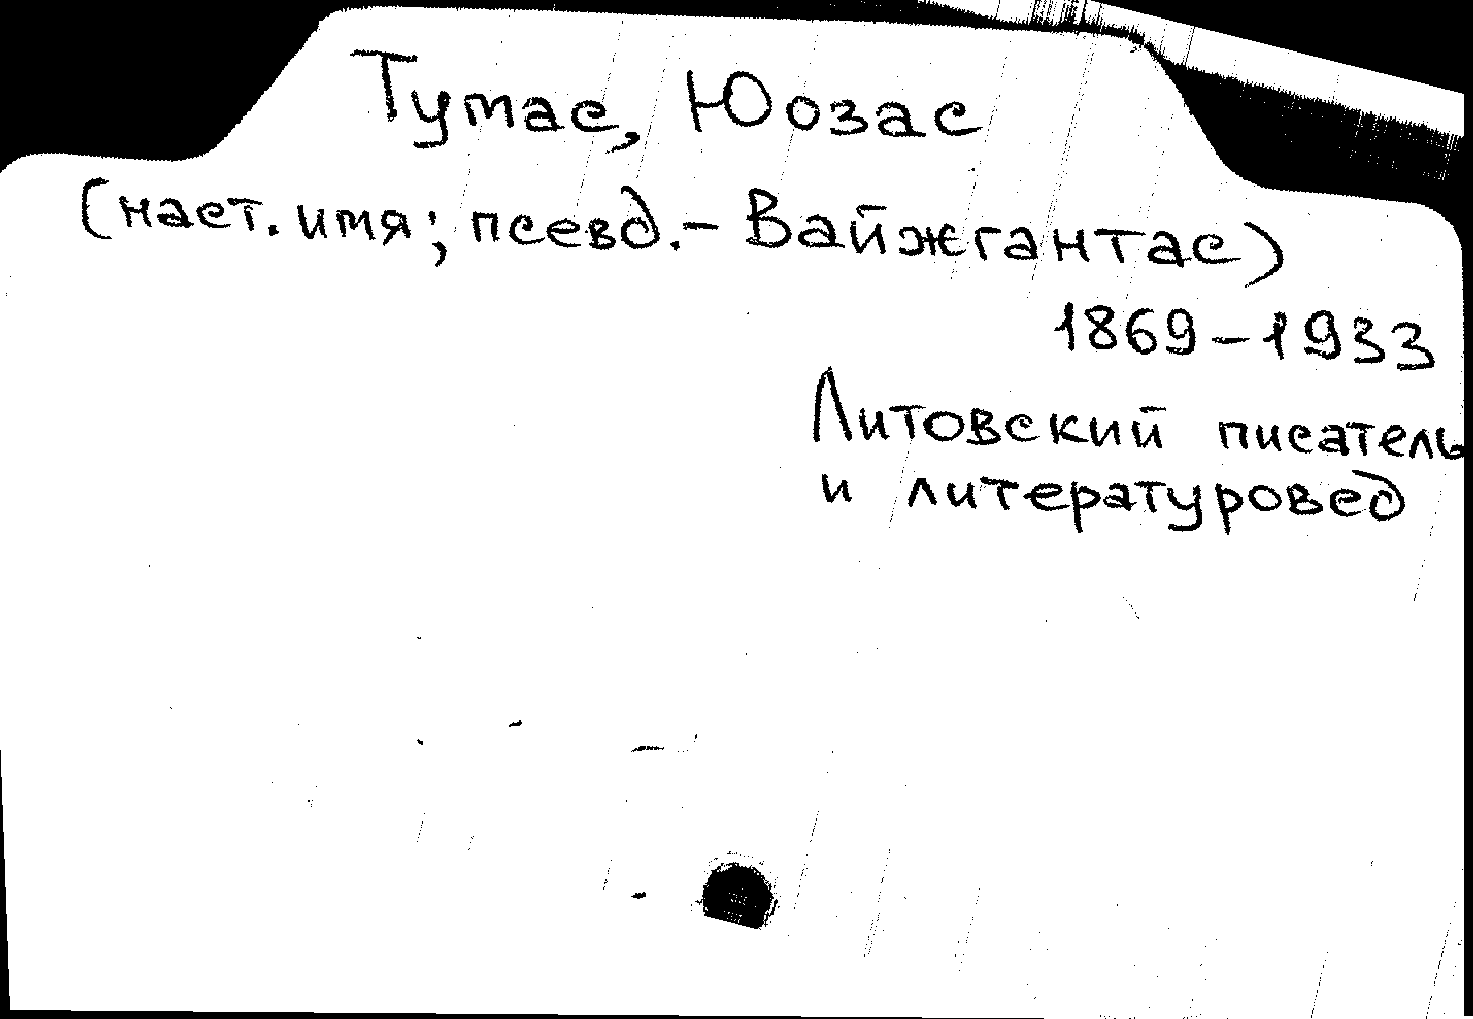 Тумас, Юозас
(наст. имя; псевд. - Вайжгантас)
1869-1933
Литовский писатель
и литературовед